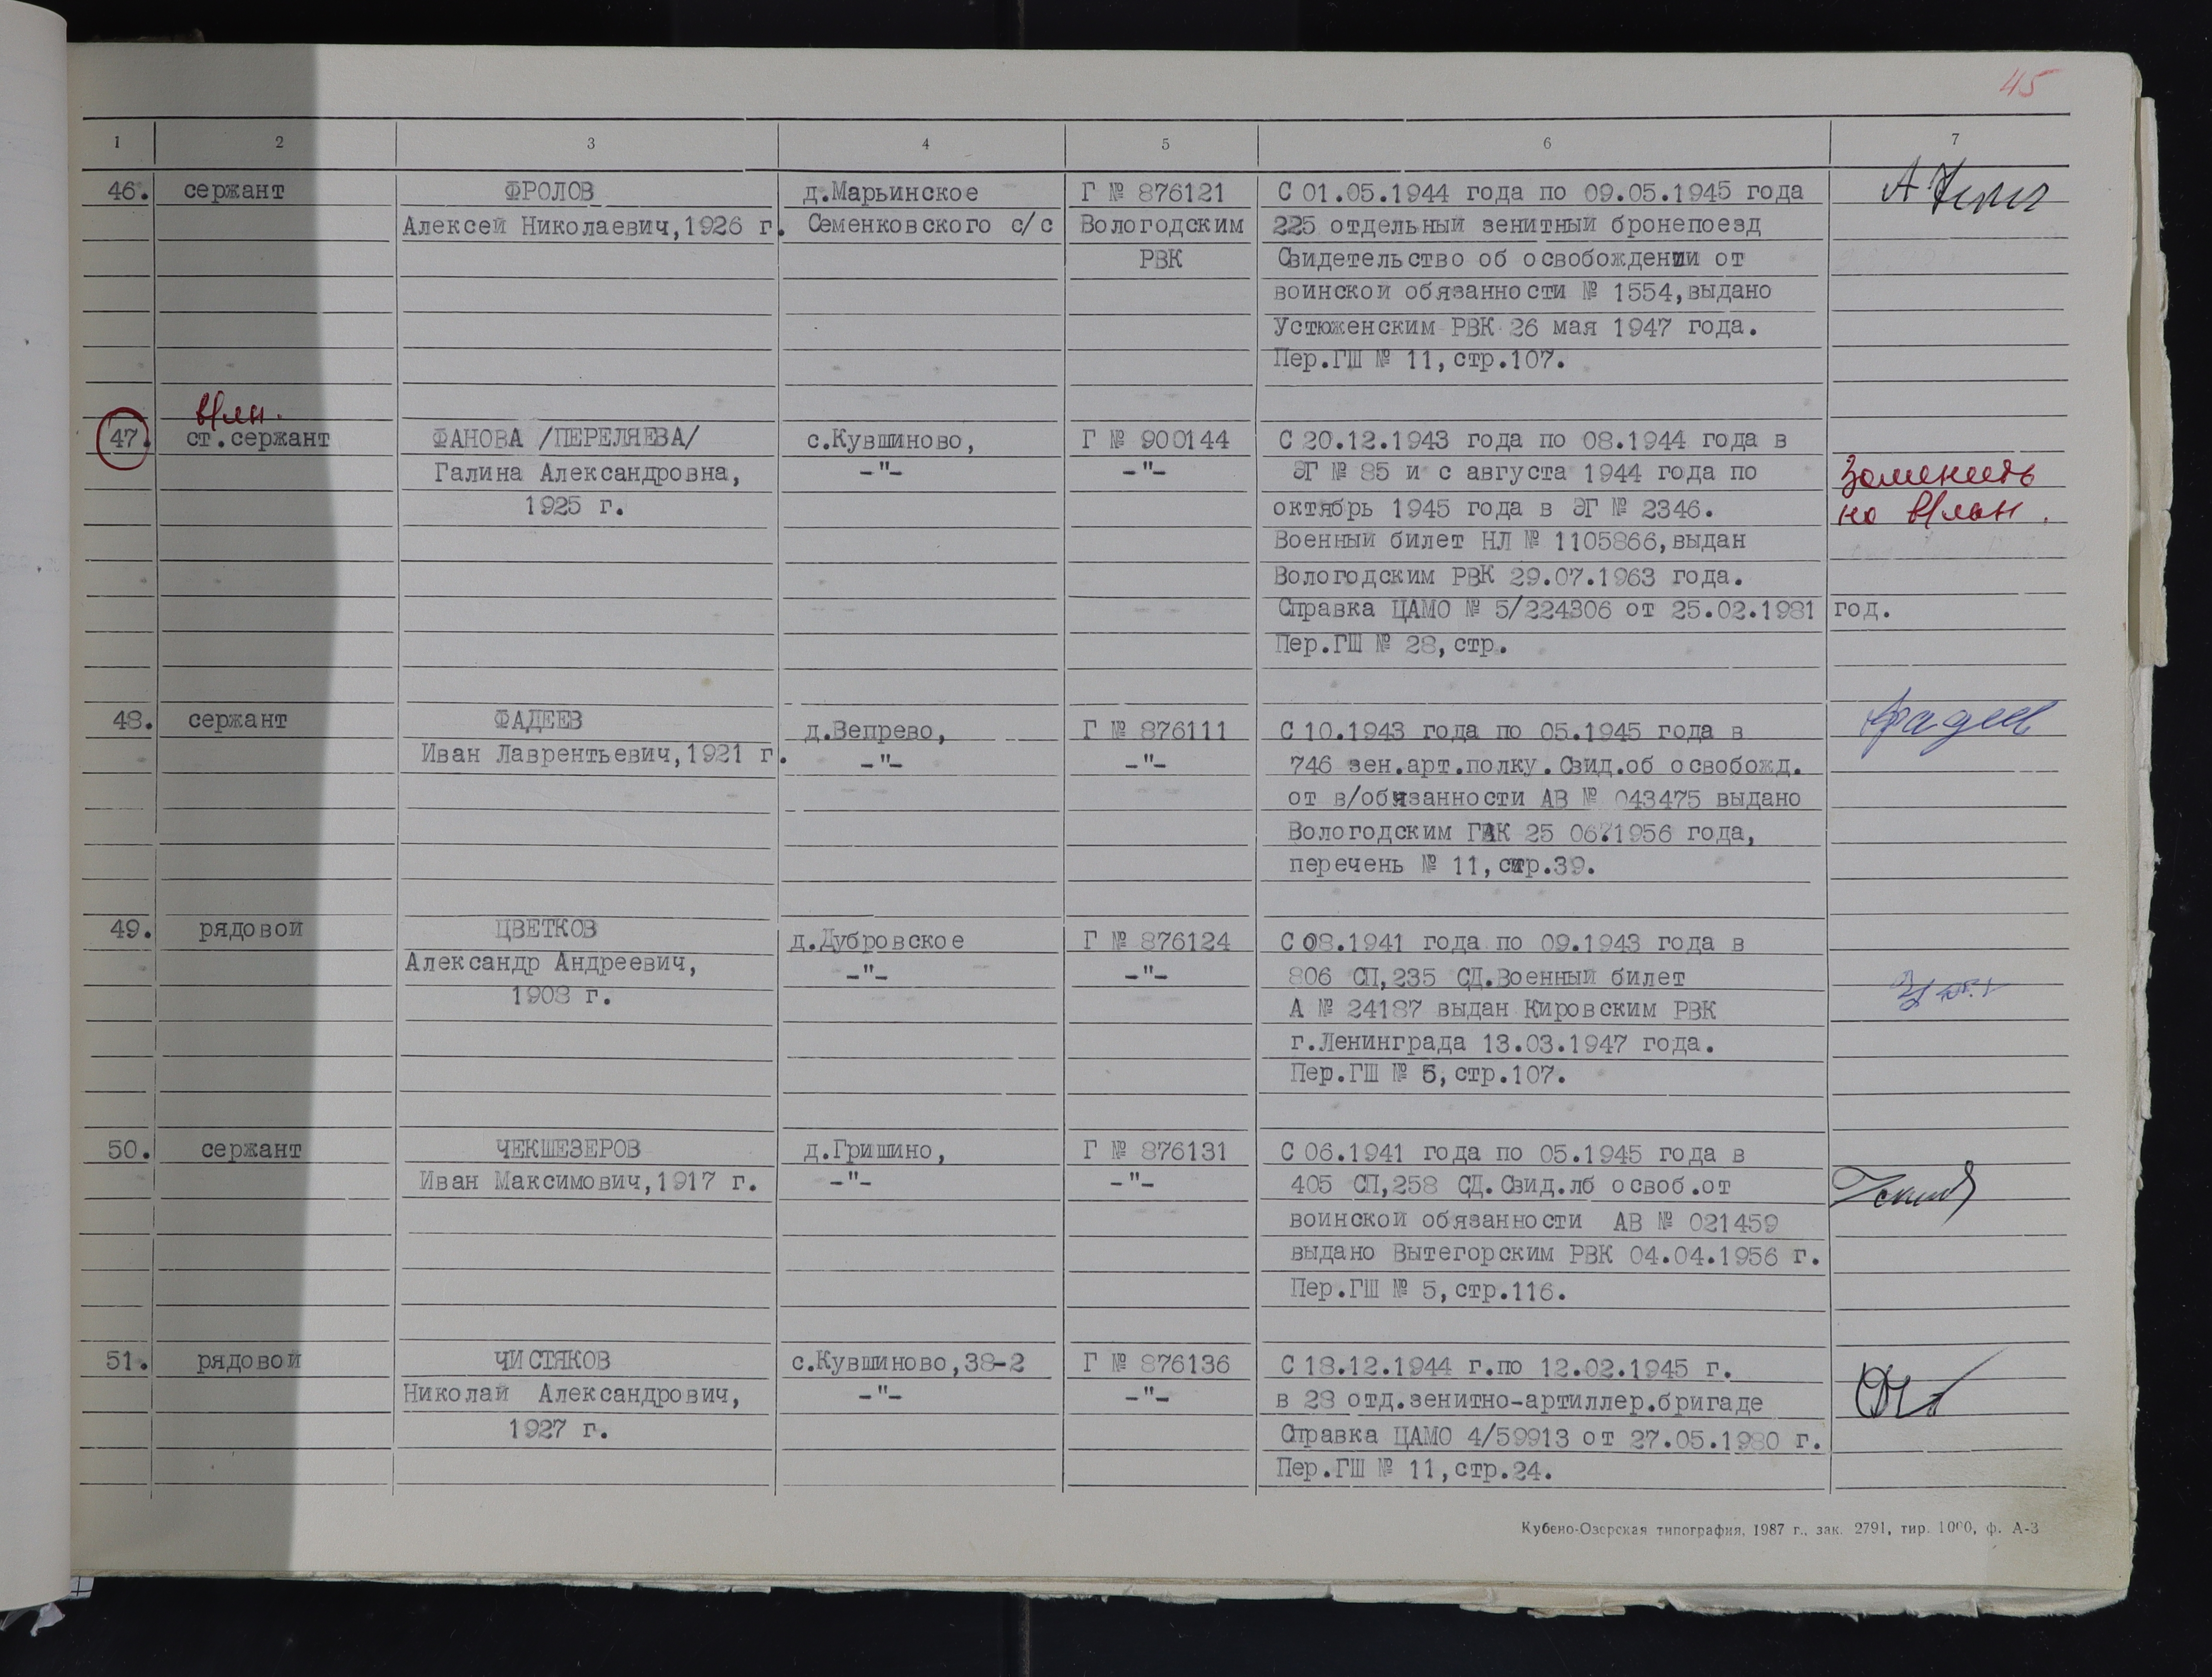 45
1 2 3 4 5 6 7
46. сержант ФРОЛОВ д.Марьинское Г № 876121 С 01.05.1944 года по 09.05.1945 года
Алексей Николаевич,1926 г. Семенковского с/с Вологодским 225 отдельный зенитный бронепоезд
РВК Свидетельство об освобождении от
воинской обязанности № 1554,выдано
Устюженским РВК 26 мая 1947 года.
Пер.ГШ № 11,стр.107.
47. ст.сержант ФАНОВА /ПЕРЕЛЯЕВА/ с.Кувшиново, Г № 900144 С 20.12.1943 года по 08.1944 года в
Галина Александровна, -"- -"- ЭГ № 85 и с августа 1944 года по Заменить
1925 г. октябрь 1945 года в ЭГ № 2346. на
Военный билет НЛ № 1105866,выдан
Вологодским РВК 29.07.1963 года.
Справка ЦАМО № 5/224306 от 25.02.1981 год.
Пер.ГШ № 28,стр.
48. сержант ФАДЕЕВ д.Вепрево, Г № 876111 С 10.1943 года по 05.1945 года в
Иван Лаврентьевич,1921 г. -"- -"- 746 зен.арт.полку.Свид.об освобожд.
от в/обязанности АВ № 043475 выдано
Вологодским 25 06.1956 года,
перечень № 11,стр.39.
49. рядовой ЦВЕТКОВ д.Дубровское Г № 876124 С 08.1941 года по 09.1943 года в
Александр Андреевич, -"- -"- 806 СП,235 СД.Военный билет
1908 г. А № 24187 выдан Кировским РВК
г.Ленинграда 13.03.1947 года.
Пер.ГШ № 5,стр.107.
50. сержант ЧЕКШЕЗЕРОВ д.Гришино, Г № 876131 С 06.1941 года по 05.1945 года в
Иван Максимович,1917 г. -"- -"- 405 СП,258 СД.Свид.лб освоб.от
воинской обязанности АВ № 021459
выдано Вытегорским РВК 04.04.1956 г.
Пер.ГШ № 5,стр.116.
51. рядовой ЧИСТЯКОВ с.Кувшиново,38-2 Г № 876136 С 18.12.1944 г.по 12.02.1945 г.
Николай Александрович, -"- -"- в 28 отд.зенитно-артиллер.бригаде
1927 г. Справка ЦАМО 4/59913 от 27.05.1980 г.
Пер.ГШ № 11,стр.24.
Кубено-Озерская типография, 1987 г., зак. 2791, тир. 1000, ф. А-3